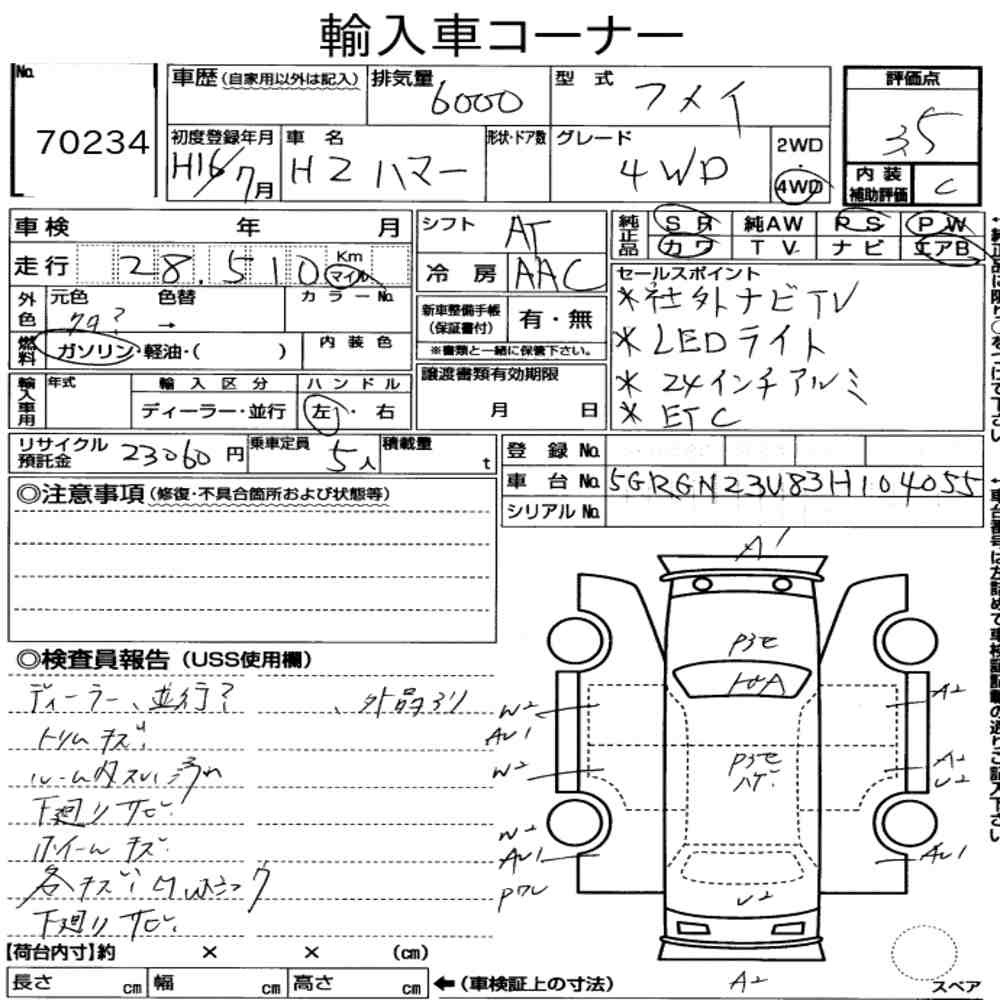 輸入車コーナー
No. 70234
車歴 (自家用以外は記入) 排気量 6000 型式 フメイ 評価点 3.5
初度登録年月 H16 7月 車名 H2 ハマー 形状・ドア数 グレード 4WD 2WD・4WD 内装補助評価 C
車検 年 月 シフト AT 純正品 SR 純AW RS PW
カワ TV ナビ エアB
走行 28,510 Km マイル 冷房 AAC
外色 元色 クロ? 色替 → カラーNo.
新車整備手帳 (保証書付) 有・無
※書類と一緒に保管下さい。
燃料 ガソリン・軽油・( ) 内装色
輸入車用 年式 輸入区分 ディーラー・並行 ハンドル 左・右
譲渡書類有効期限 月 日
セールスポイント
*社外ナビTV
*LEDライト
*24インチアルミ
*ETC
リサイクル預託金 23060円 乗車定員 5人 積載量 t
登録No.
車台No. 5GRGN23U83H104055
シリアルNo.
◎注意事項 (修復・不具合箇所および状態等)
◎検査員報告 (USS使用欄)
ディーラー、並行? 、外品有り
トリムキズ
ルームタスレ汚れ
下廻りサビ
ホイールキズ
各キズ
下廻りサビ
A1
P3セ
トビA
P3セ
ハゲ
W2
AU1
W2
W2
AU1
A2
A2
U2
AU1
U2
A2
スペア
【荷台内寸】約 × × (cm)
長さ cm 幅 cm 高さ cm ←(車検証上の寸法)
↑純正品に限り○をつけて下さい
↑車台番号は左詰めで車検証記載の通りご記入下さい